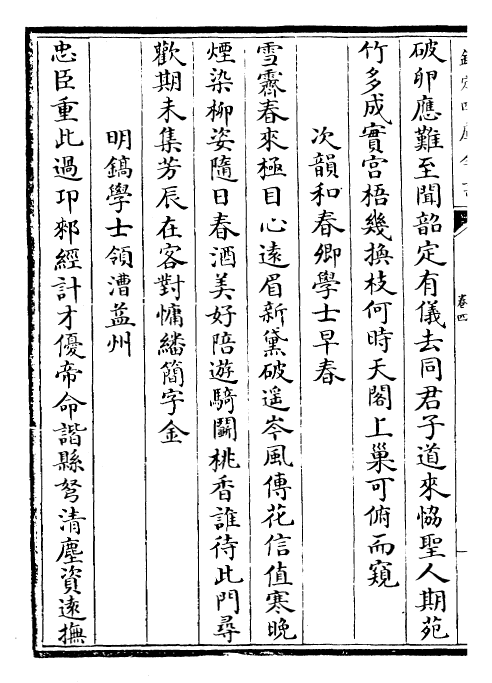 欽定四庫全書
卷四
破卵應難至聞韶定有儀去同君子道來恊聖人期苑
竹多成實宫梧幾換枝何時天閣上巢可俯而窺
次韻和春卿學士早春
雪霽春來極目心遠眉新黛破遥岑風傳花信值寒晚
煙染柳姿隨日春酒美好陪遊騎鬭桃香誰待此門尋
歡期未集芳辰在客對慵繙簡字金
明鎬學士領漕益州
忠臣重此過邛郲經計才優帝命諧縣弩清塵資遠撫